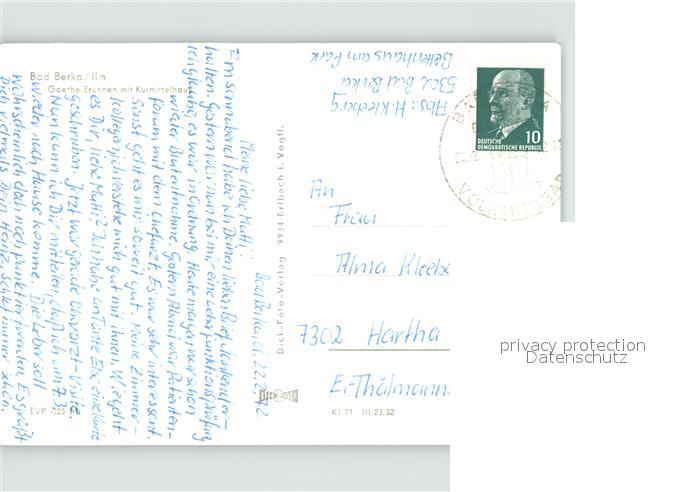 Bad Berka / Ilm
Goethe-Brunnen mit Kurmittelhaus
Bad Berka, d. 22.2.72
Meine liebe Mutti!
Am Sonnabend habe ich Deinen lieben Brief dankend er-
halten. Gestern war nun bei mir eine Leberfunktionsprüfung
Ich glaube, es war in Ordnung. Heute morgen war schon
wieder Blutentnahme. Gestern Abend war Patienten-
forum mit dem Chefarzt. Es war sehr interessant.
Sonst geht es mir soweit gut. Meine Zimmer-
kollegen, ich verstehe mich gut mit ihnen. Wie geht
es Dir, liebe Mutti? Ich habe an Tante Else eine Karte
geschrieben. Jetzt war gerade Oberarzt-Visite.
Nun kann ich Dir mitteilen, daß ich am 7.3.
wieder nach Hause komme. Die Leber soll
wahrscheinlich doch noch punktiert werden. Es grüßt
Dich vielmals Dein Heinz, schlaf immer schön.
EVP -,25 M
Dick-Foto-Verlag 9934 Erlbach i. Vogtl.
DICK FOTO
K1 71 III,23,32
Abs.: H. Kleeberg
5302 Bad Berka
Bettenhaus am Park
10
DEUTSCHE
DEMOKRATISCHE REPUBLIK
VOLKSHEILBAD
An
Frau
Alma Kleebe
7302 Hartha
E.-Thälmann
privacy protection
Datenschutz